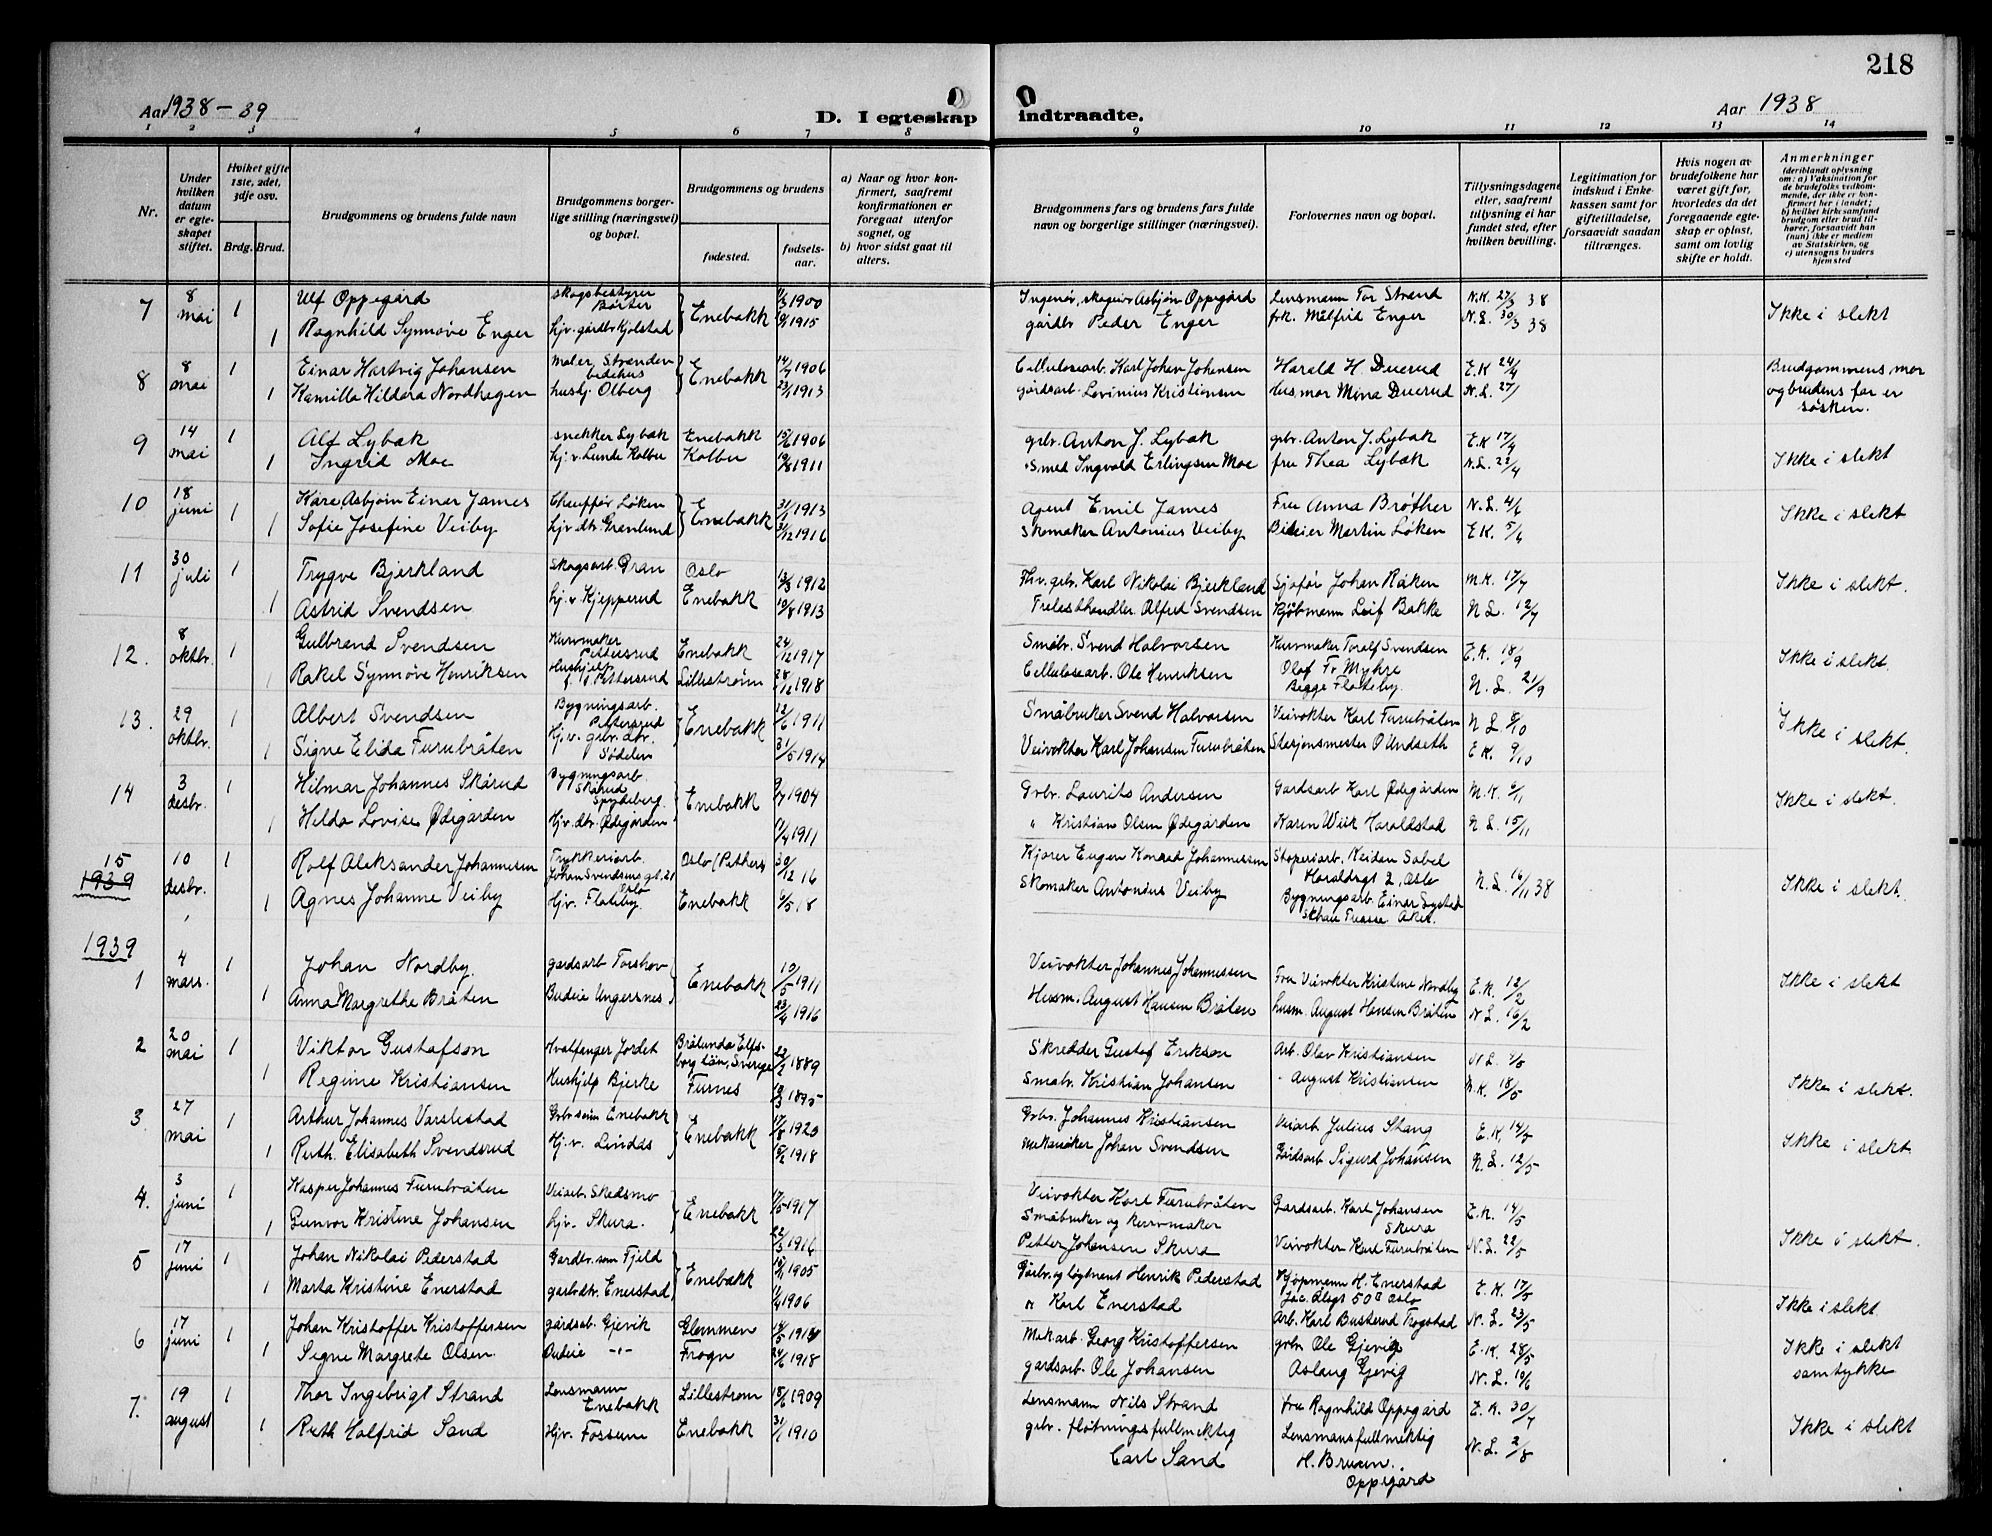 218
Aar 1938 – 39
D. I egteskap indtraadte.
Aar 1938
1 2 3 4 5 6 7 8 9 10 11 12 13 14
Nr.
Under hvilken datum er egteskapet stiftet.
Hvilket gifte 1ste, 2det, 3dje osv.
Brdg. Brud.
Brudgommens og brudens fulde navn
Brudgommens borgerlige stilling (næringsvei) og bopæl.
Brudgommens og brudens
fødested.
fødselsaar.
a) Naar og hvor konfirmert, saafremt konfirmationen er foregaat utenfor sognet, og
b) hvor sidst gaat til alters.
Brudgommens fars og brudens fars fulde navn og borgerlige stillinger (næringsvei).
Forlovernes navn og bopæl.
Tillysningsdagene eller, saafremt tillysning ei har fundet sted, efter hvilken bevilling.
Legitimation for indskud i Enkekassen samt for giftetilladelse, forsaavidt saadan tiltrænges.
Hvis nogen av brudefolkene har været gift før, hvorledes da det foregaaende egteskap er opløst, samt om lovlig skifte er holdt.
Anmerkninger (deriblandt oplysning om: a) Vaksination for de brudefolks vedkommende, der ikke er konfirmert her i landet; b) hvilket kirkesamfund brudgom eller brud tilhører, forsaavidt han (hun) ikke er medlem av Statskirken, og c) utensogns bruders hjemsted
7 8 mai 1 Ulf Oppegård skogsbestyrer Børter Enebakk 1900 Asbjørn Oppegård Lensmann Tor Strand N.K. 27/3 38 Ikke i slekt
1 Ragnhild Synnøve Enger hjv. gårdbr. Kjolstad 1915 gårdbr Peder Enger frk. Målfrid Enger N.L. 30/3 38
8 8 mai 1 Einar Hartvig Johansen Maler Enebakk 14/7 1906 Cellulosearb. Karl Johan Johansen Harald H. Duerud E.K 24/4 Brudgommens mor og brudens far er søsken.
1 Kamilla Hildara Nordhagen hushj. Olberg 23/1 1913 gårdsarb. Lovinius Kristiansen Husmor Mina Duerud N.L. 27/
9 14 mai 1 Alf Lybæk snekker Lybæk Enebakk 15/6 1906 grbr. Anton J. Lybæk grbr. Anton J. Lybæk E.K 17/4 Ikke i slekt
1 Ingrid Moe hj. v. Lunde Kolbu Kolbu 1911 Smed Ingvald Erlingsen Moe fru Thea Lybæk N.L. 22/4
10 18 juni 1 Kåre Asbjørn Einar James Chauffør Løken Enebakk 1913 Agent Emil James Fru Anna Brøther N.L. 4/6 Ikke i slekt
1 Sofie Josefine Veiby hjv. dtr. Granlund 3/12 1916 Skomaker Antonius Veiby Bileier Martin Løken E.K. 5/6
11 30 juli 1 Trygve Bjerkland Skogsarb. Gran Oslo 13/3 1912 Fhv. grbr. Karl Nikolai Bjerkland Sjafør Johan Råken M.K. 17/7 Ikke i slekt.
1 Astrid Svendsen hj. v. Kjepperud Enebakk 10/8 1913 Trelasthandler Alfred Svendsen Kjøbmann Leif Bakke N.L. 12/7
12. 8 oktbr. 1 Gulbrand Svendsen Kurvmaker Pettersrud Enebakk 24/12 1917 Småbr. Svend Halvorsen Kurvmaker Toralf Svendsen E.K. 18/9 Ikke i slekt.
Rakel Synnøve Henriksen Hushjelp Pettersrud Lillestrøm 28/12 1918 Cellulosearb. Ole Henriksen Olaf Fr. Myhre Begge Flateby. N.L. 21/9
13. 29 oktbr. 1 Albert Svendsen Bygningsarb. Pettersrud Enebakk 12/6 1911 Småbruker Svend Halvorsen Veivokter Karl Furubråten N.L. 8/10 Ikke i slekt.
1 Signe Elida Furubråten Hj. v. grbr. dtr. Sødelen 31/5 1914 Veivokter Karl Johansen Furubråten Stasjonsmester O Undseth E.K. 9/10
14 3 desbr. 1 Hilmar Johannes Skårud Bygningsarb. Skårud Spydeberg. Enebakk 9/7 1904 Grbr. Laurits Andersen Gardsarb Karl Ødegården M.K. 6/11 Ikke i slekt.
1 Hilda Lovise Ødegården Hjv. dtr. Ødegården 11/4 1911 " Kristian Olsen Ødegården Karen Wiik Haraldstad N.L. 15/11
15 1939 10 desbr. 1 Rolf Aleksander Johannessen Trykkeriarb. Johan Svendsens gt. 21 Oslo Oslo (Petrus) 30/12 16 Kjører Eugen Konrad Johannessen Støperiarb. Reidar Sobel Haraldsgt 2, Oslo N.L. 16/11 38 Ikke i slekt.
1 Agnes Johanne Veiby hjv. Flateby. Enebakk 6/5 18 Skomaker Antonius Veiby Bygningsarb. Einar Aker.
1939
1 4 mars. 1 Johan Nordby gardsarb Torshov Enebakk 10/5 1911 Veivokter Johannes Johannessen Fru Veivokter Kristine Nordby E.K. 12/2 Ikke i slekt
1 Anna Margrethe Bråten Budeie Ungersnes 23/4 1916 Husm. August Hansen Bråten husm. August Hansen Bråten N.L. 16/2
2 20 mai 1 Viktor Gustafson Hvalfanger Jordet Brålunda Elfsborg län, Sverige 22/2 1889 Skredder Gustaf Erikson Arb. Olav Kristiansen N.L. Ikke i slekt.
1 Regine Kristiansen Hushjelp Bjerke Furnes 1895 Småbr. Kristian Johansen - August Kristiansen N.K. 18/5
3 27 mai 1 Arthur Johannes Varslestad Grbrsønn Enebakk Enebakk 17/8 1920 Grbr. Johannes Kristiansen Veiarb Julius Stang E.K. 14/5 Ikke i slekt
1 Ruth Elisabeth Svendsrud Hj. v. Lindås 1918 Mekaniker Johan Svendsen Gårdsarb. Sigurd Johansen N.L. 12/5
4. 3 juni 1 Kasper Johannes Furubråten Veiarb. Skedsmo Enebakk 1917 Veivokter Karl Furubråten Gardsarb. Karl Johansen Skura E.K. 14/5 Ikke i slekt.
1 Gunvor Kristine Johansen hjv. Skura. 22/3 1916 Småbruker og kurvmaker Petter Johansen Skura Veivokter Karl Furubråten N.L. 22/5
5 17 juni 1 Johan Nikolai Pederstad Gardbr. sønn Fjeld Enebakk 1905 Gårbr. og løytnant Henrik Pederstad Kjøpmann H. Enerstad Oslo E.K. 17/5 Ikke i slekt
1 Marta Kristine Enerstad garbrdtr. Enerstad 1/4 1906 " Karl Enerstad Arb. Karl Busterud Trøgstad N.L. 23/5
6 17 juni 1 Johan Kristoffer Kristoffersen gårdsarb. Gjevik Glemmen 14/5 Mek arb. Georg Kristoffersen grbr. Ole Gjevig E.K. 28/5 Ikke i slekt samtykke
1 Signe Margrete Olsen. Budeie -"- Frogn 24/6 1918 gardsarb. Ole Johansen Aslaug Gjevig N.L. 10/6
7. 19 august 1 Thor Ingebrigt Strand Lensmann Enebakk Lillestrøm 18/6 1909 Lensmann Nils Strand Fru Ragnhild Oppegård E.K. 30/7 Ikke i slekt
1 Ruth Halfrid Sand Hjv. Fossum Enebakk 31/1 1910 grbr. fløtningsfullmektig Carl Sand Lensmansfullmektig H. Bruun. Oppegård N.L. 2/8